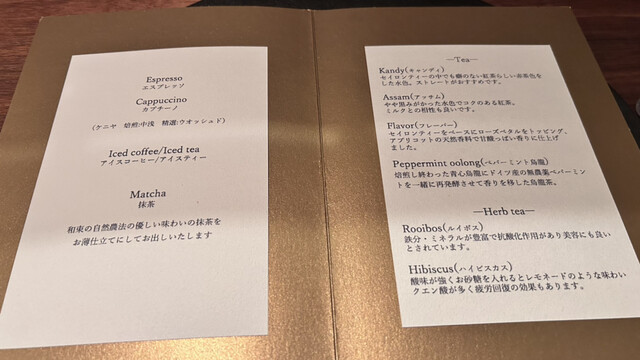 Espresso
エスプレッソ
Cappuccino
カプチーノ
(ケニヤ 焙煎:中浅 精選:ウオッシュド)
Iced coffee/Iced tea
アイスコーヒー/アイスティー
Matcha
抹茶
和束の自然農法の優しい味わいの抹茶を
お薄仕立てにしてお出しいたします
—Tea—
Kandy(キャンディ)
セイロンティーの中でも癖のない紅茶らしい赤茶色を
した水色。ストレートがおすすめです。
Assam(アッサム)
やや黒みがかった水色でコクのある紅茶。
ミルクとの相性も良いです。
Flavor(フレーバー)
セイロンティーをベースにローズペタルをトッピング、
アプリコットの天然香料で甘酸っぱい香りに仕上げ
ました。
Peppermint oolong(ペパーミント烏龍)
焙煎し終わった青心烏龍にドイツ産の無農薬ペパーミン
トを一緒に再発酵させて香りを移した烏龍茶。
—Herb tea—
Rooibos(ルイボス)
鉄分・ミネラルが豊富で抗酸化作用があり美容にも良い
とされています。
Hibiscus(ハイビスカス)
酸味が強くお砂糖を入れるとレモネードのような味わい
クエン酸が多く疲労回復の効果もあります。